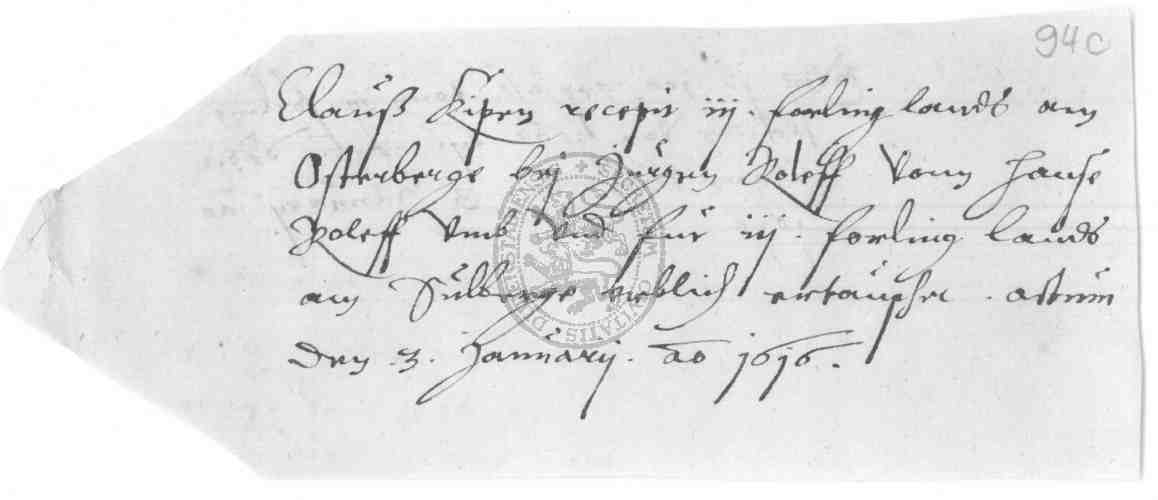 94c
Clauß Kipen recepit iij. forling lands am
Osterberge bej Jürgen Roleff vonn Hanse
Roleff vmb vnd für iij. forling lands
am Sülberge erblich ertauschet. actum
den .3. Januarij. ao 1616.